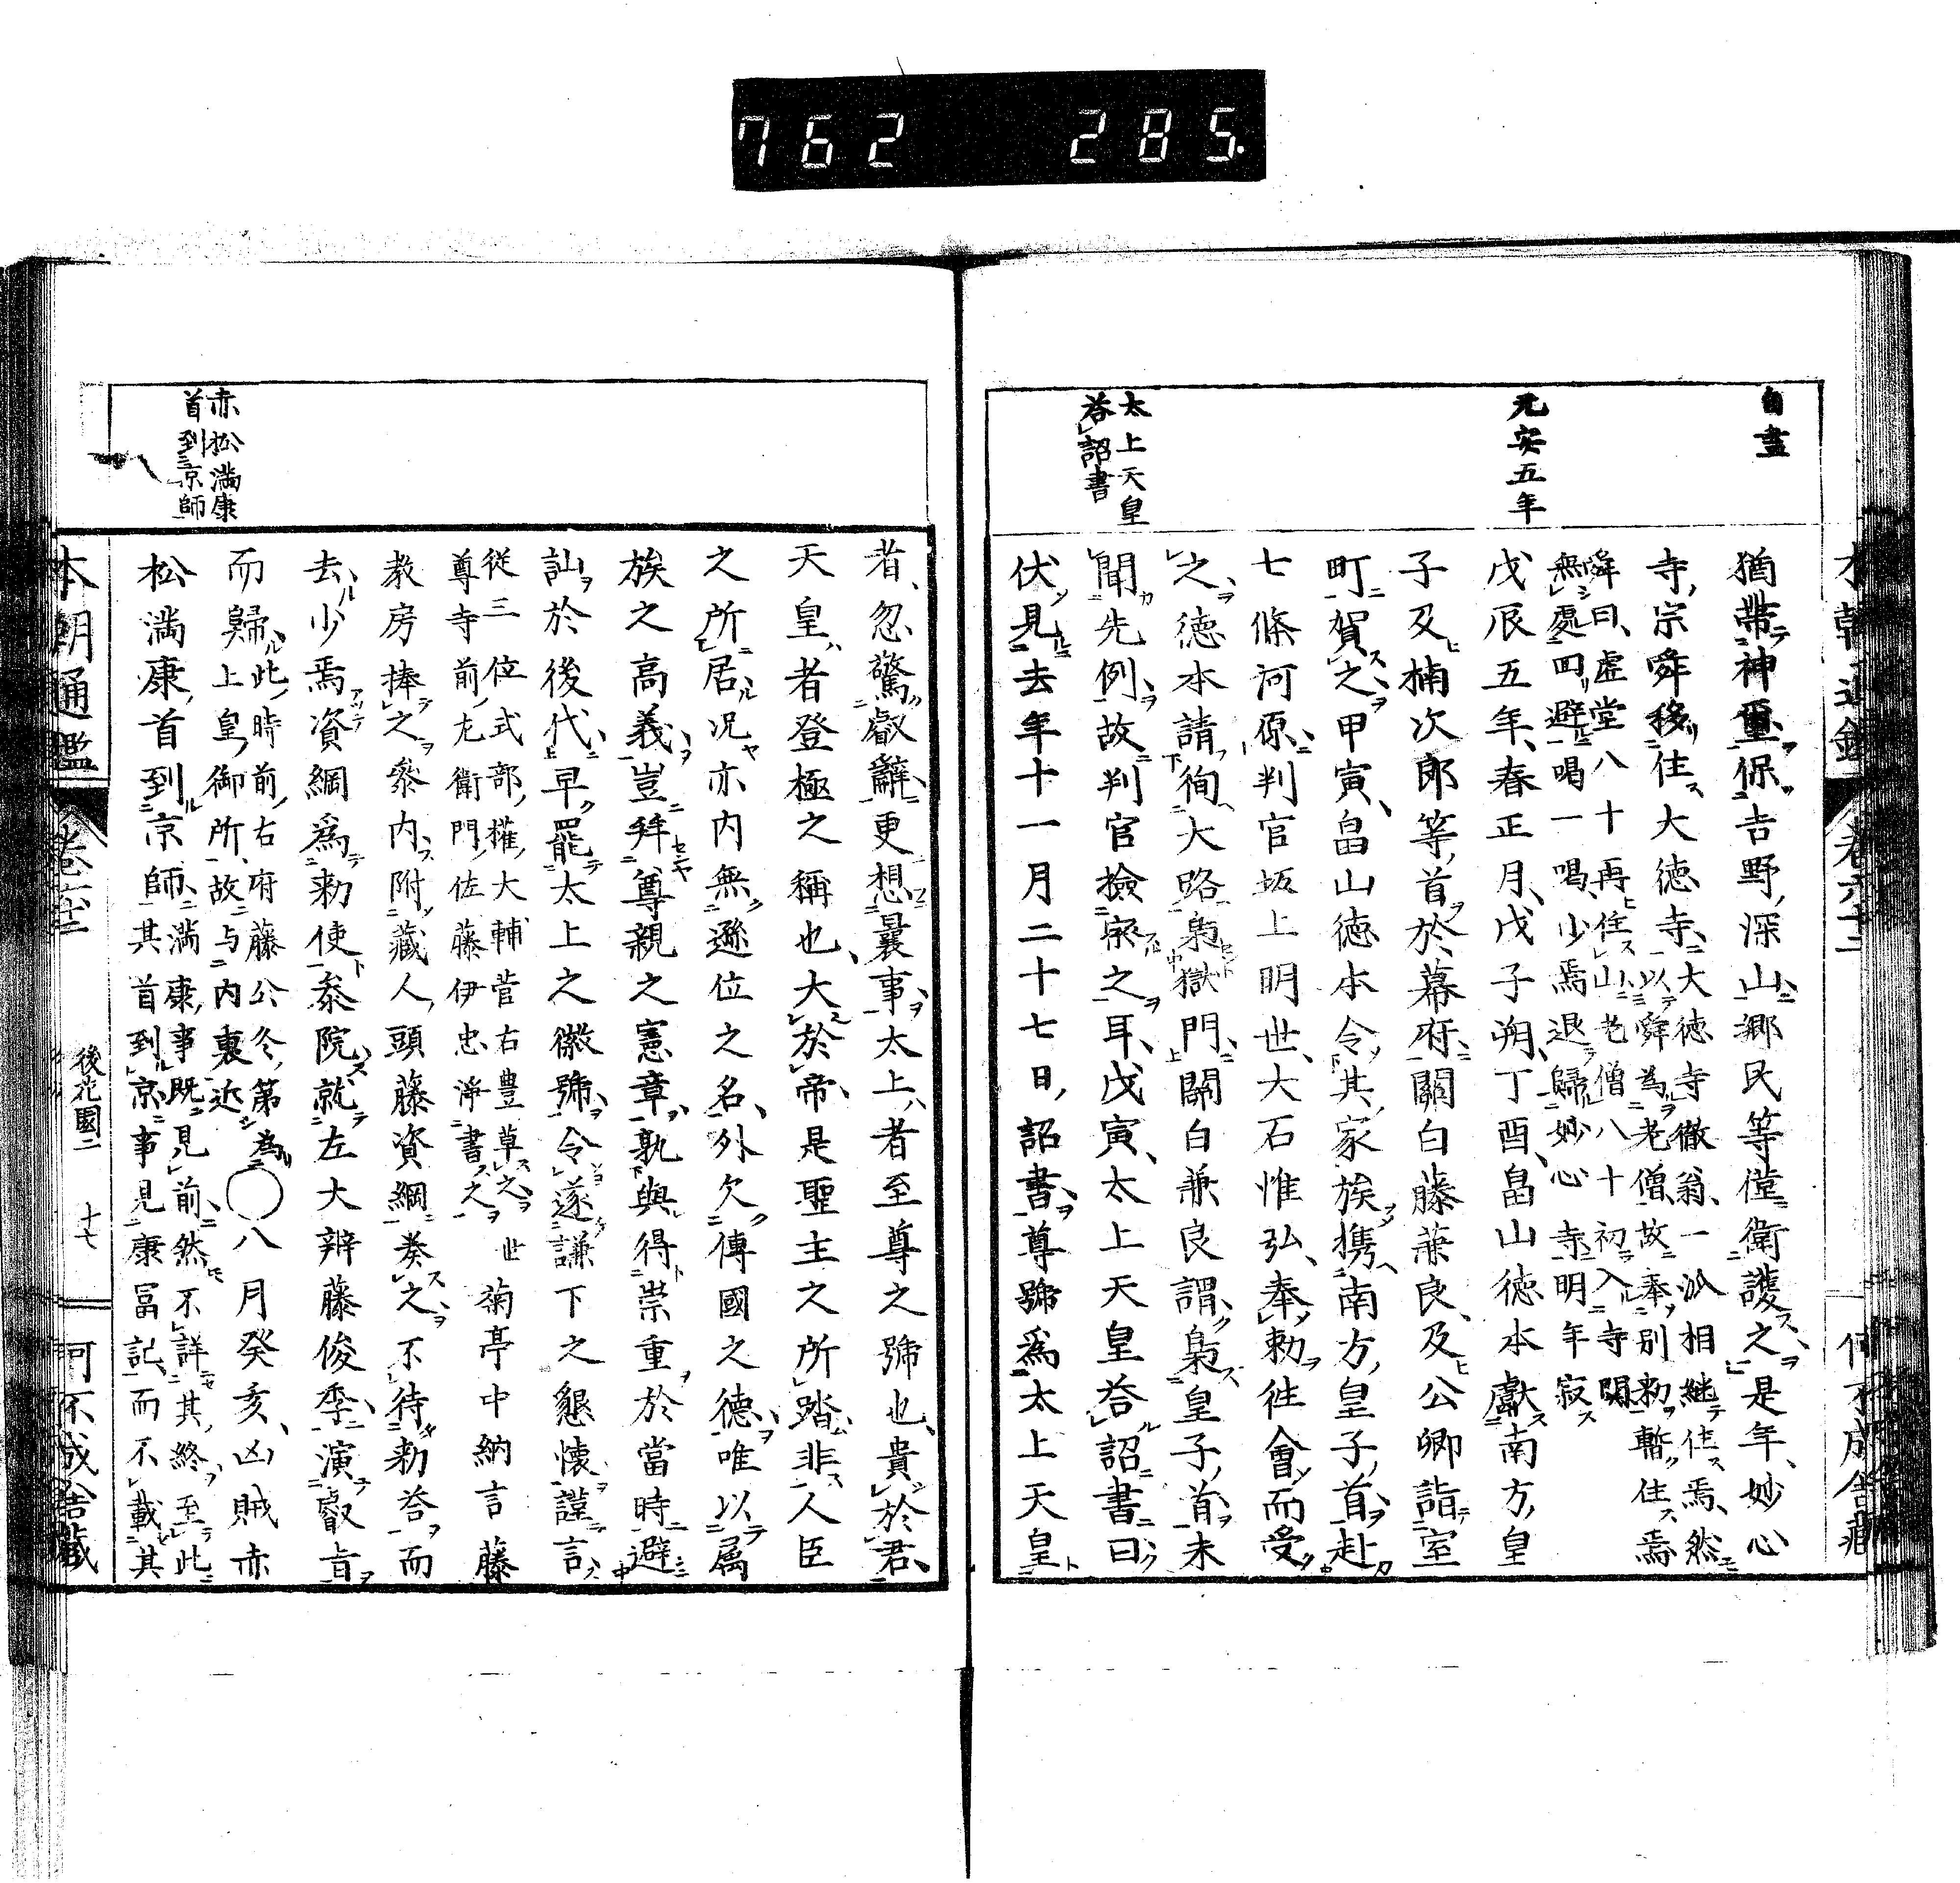 762 285.
自盡
元安五年
太上天皇
荅詔書
猶帶神璽保吉野深山鄕民等僅衛護之是年妙心
寺宗舜移住大德寺
大德寺徹翁一派相継住焉然
以舜為老僧故奉別勅暫住焉
舜曰虚堂八十再住山老僧八十初入寺
無處回避喝一喝少焉退歸妙心寺明年寂
戊辰五年春正月戊子朔丁酉畠山德本獻南方皇
子及楠次郎等首於幕府關白藤兼良及公卿詣室
町賀之甲寅畠山德本令其家族携南方皇子首赴
七條河原判官坂上明世大石惟弘奉勅往會而受
之德本請徇大路梟獄門關白兼良謂梟皇子首未
聞先例故判官撿㝮之耳戊寅太上天皇荅詔書曰
伏見去年十一月二十七日詔書尊號爲太上天皇
本朝通鑑 卷六十二 何不成舎藏
赤松満康
首到京師
者忽驚叡辭更想曩事太上者至尊之號也貴於君
天皇者登極之稱也大於帝是聖主之所踏非人臣
之所居况亦内無遜位之名外欠傳國之德唯以属
族之高義豈拜尊親之憲章孰與得崇重於當時避
訕於後代早罷太上之徽號令遂謙下之懇懷謹言
從三位式部權大輔菅右豊草之世
尊寺前尤衛門佐藤伊忠淨書之
菊亭中納言藤
教房捧之參内附藏人頭藤資綱奏之不待勅荅而
去少焉資綱爲勅使泰院就左大辨藤俊季演叡旨
而歸
此時前右府藤公冬第為
上皇御所故与内裏近
○八月癸亥凶賊赤
松満康首到京師
満康事既見前然不詳其終至此
其首到京事見康冨記而不載其
本朝通鑑 卷六十二 後花園二 十七 何不成舎藏